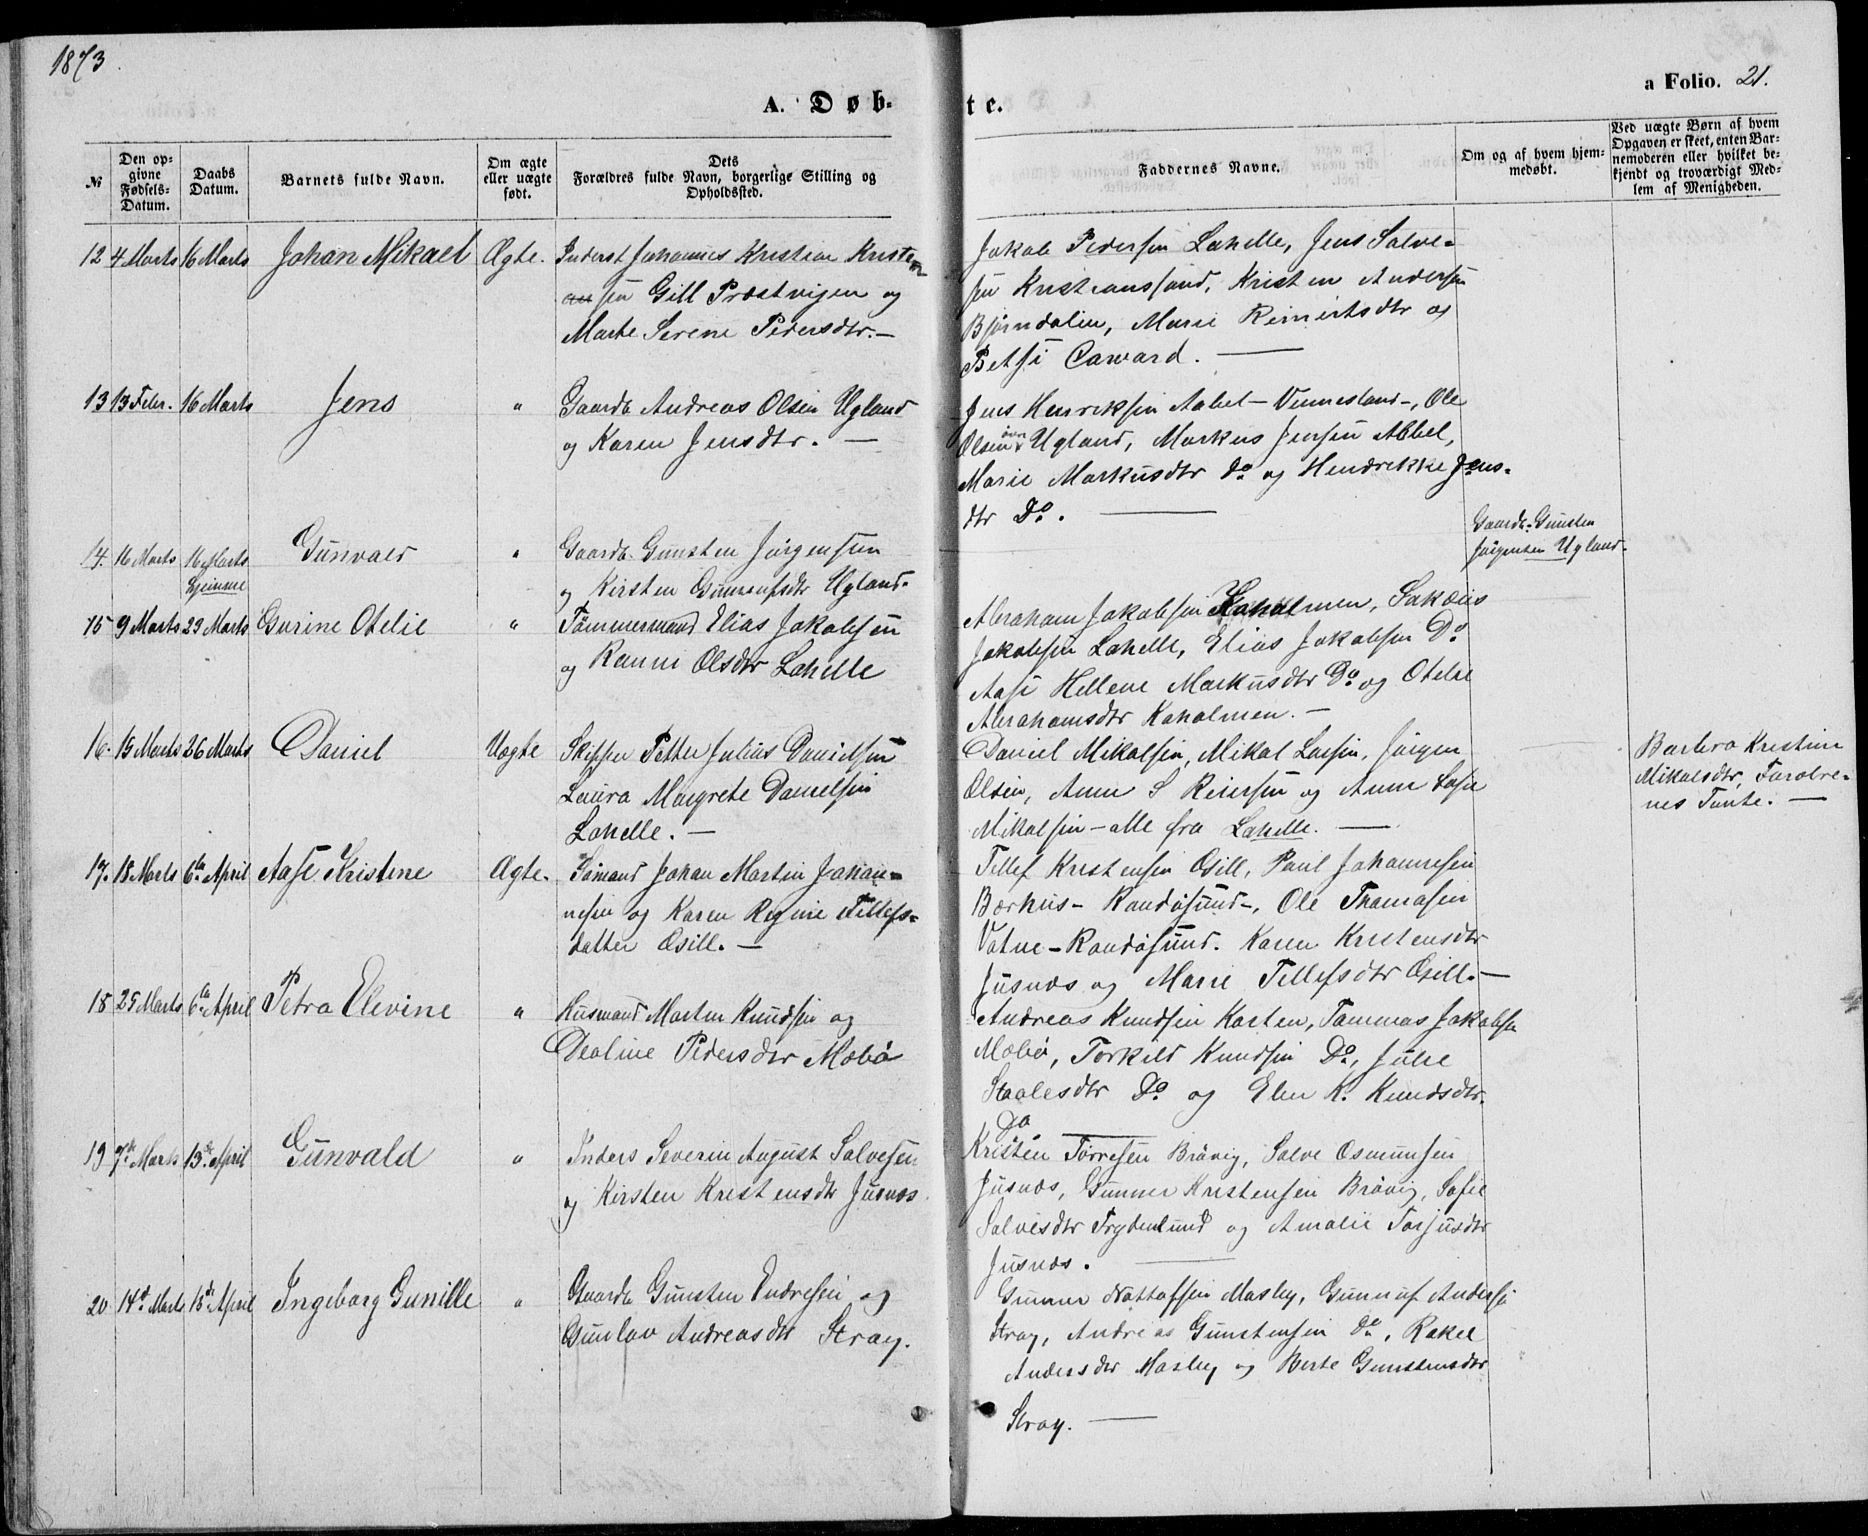 1873.
A. Døb-
te.
a Folio. 21.
№
Den op-
givne
Fødsels-
Datum.
Daabs
Datum.
Barnets fulde Navn.
Om ægte
eller uægte
født.
Dets
Forældres fulde Navn, borgerlige Stilling og
Opholdssted.
Faddernes Navne.
Om og af hvem hjem-
medøbt.
Ved uægte Børn af hvem
Opgaven er skeet, enten Bar-
nemoderen eller hvilket be-
kjendt og troværdigt Med-
lem af Menigheden.
12 4 Marts 16 Marts Johan Mikael Ægte. Inderst Johannes Kristian Kristen
sen Gill Præstvigen og
Marte Serene Pedersdtr. —
Jakob Pedersen Lahelle, Jens Salve-
sen Kristianssand, Kristen Andersen
Bjørndalen, Marie Reinertsdtr og
Betsi Caward. —
13 13 Febr. 16 Marts Jens " Gaardb. Andreas Olsen Ugland
og Karen Jensdtr. —
Jens Henriksen Aabel - Vennesland -, Ole
Olsen Ugland, Markus Jensen Abbel,
Marie Markusdtr Do og Hendrikke Jens-
dtr Do. —
14. 16 Marts 16 Marts Gunvald " Gaardb. Gunsten Jørgensen
hjemme
og Kirsten Gunnufsdtr Ugland.
Gaardb. Gunsten
Jørgensen Ugland.
15 9 Marts 23 Marts Gurine Otelie " Tømmermand Elias Jakobsen
og Ranni Olsdtr Lahelle
Abraham Jakobsen Kaholmen, Sakæus
Jakobsen Lahelle, Elias Jakobsen Do
Aase Hellene Markusdtr Do og Otelie
Abrahamsdtr Kaholmen. —
16. 15 Marts 26 Marts Daniel Uægte Skipper Petter Julius Danielsen
Laura Margrete Danielsen
Lahelle. —
Daniel Mikalsen, Mikal Larsen, Jørgen
Olsen, Anne S Reiersen og Anne Sofie
Mikalsen - alle fra Lahelle. —
Barbro Kristine
Mikalsdtr, Forældre-
nes Tante. —
17. 18 Marts 6te April Aase Kristine Ægte. Sømand Johan Martin Johan-
nesen og Karen Regine Tellefs-
datter Gill. —
Tellef Kristensen Gill, Paul Johannesen
Børhus - Randøsund -, Ole Thomasen
Vatne - Randøsund. Karen Kristensdtr
Jusnes og Marie Tellefsdtr Gill. —
18 25 Marts 6te April Petra Elevine " Husmand Morten Knudsen og
Dealine Pedersdtr Mæbø
Andreas Knudsen Kosten, Tommas Jakobsen
Mæbø, Torkild Knudsen Do, Julie
Staalesdtr Do og Elen K. Knudsdtr.
Do —
19 7de Marts 13de April Gunvald " Inders Severin August Salvesen
og Kirsten Kristensdtr Jusnes.
Kristen Torresen Bråvig, Salve Osmunsen
Jusnæs, Gunner Kristensen Bråvig, Sofie
Salvesdtr Frydenlund og Amalie Torjusdtr
Jusnæs. —
20 14de Marts 13de April Ingeborg Gunille " Gaardb Gunsten Endresen og
Gunlov Andreasdtr Stray.
Gunner Nottolfsen Mosby, Gunnuf Andersen
Stray, Andreas Gunstensen Do, Rakel
Andersdtr Mosby og Berte Gunstensdtr
Stray. —